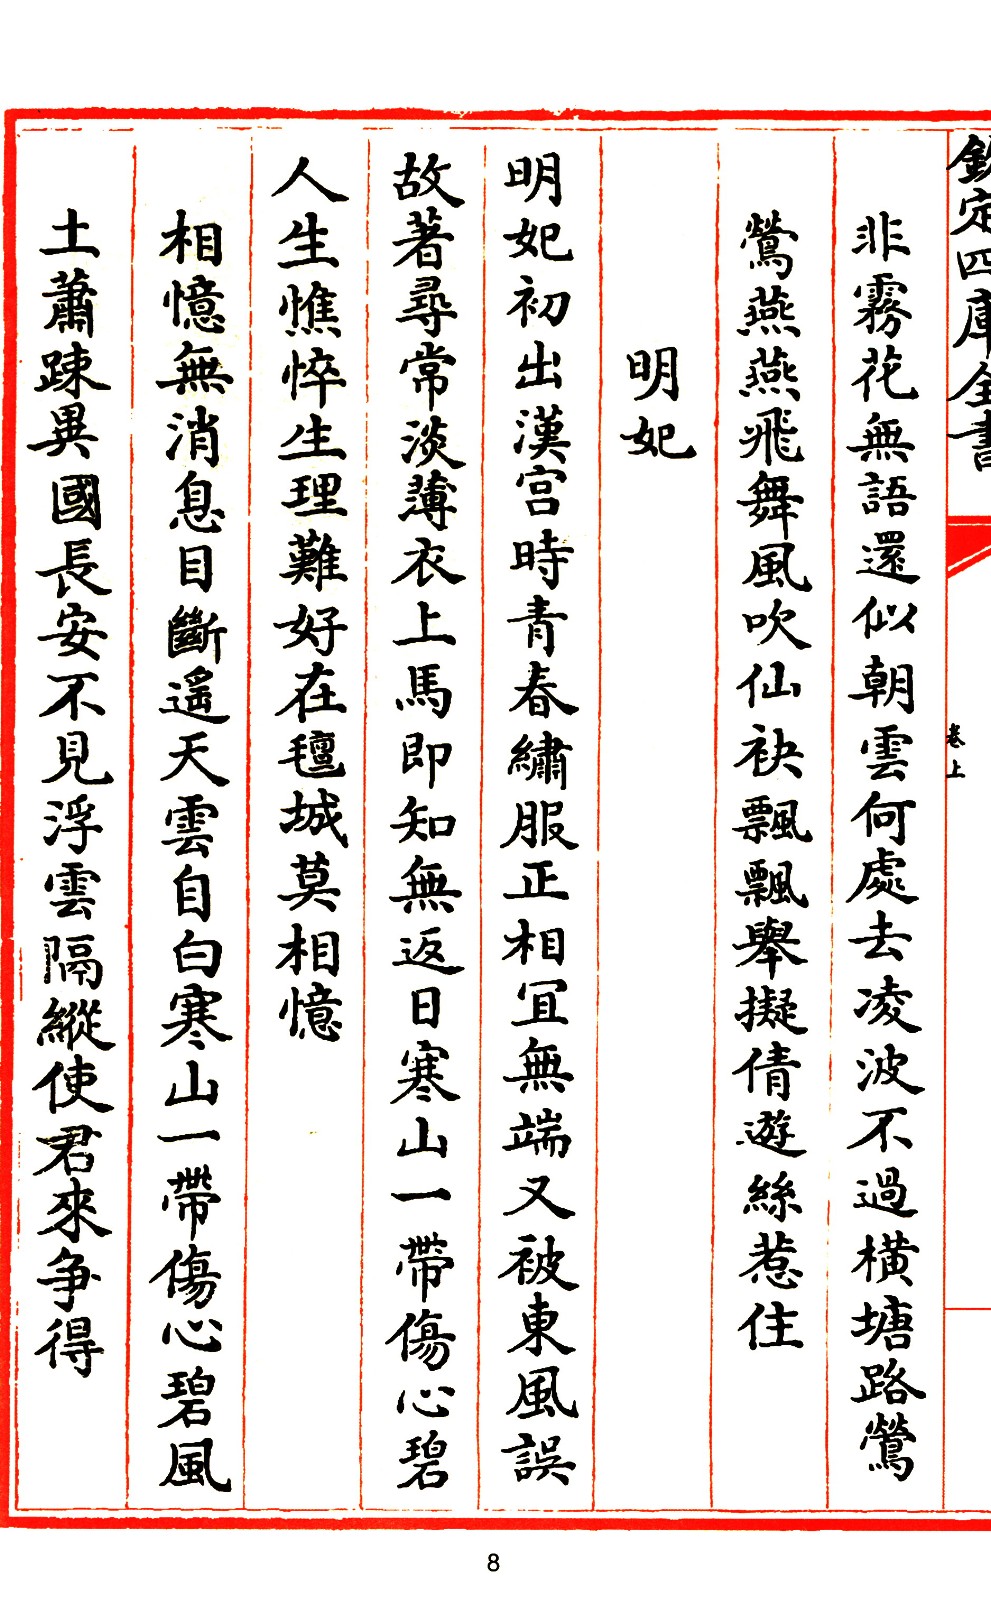 欽定四庫全書
卷上
非霧花無語還似朝雲何處去凌波不過橫塘路鶯
鶯燕燕飛舞風吹仙袂飄飄舉擬倩遊絲惹住
明妃
明妃初出漢宮時青春繡服正相宜無端又被東風誤
故著尋常淡薄衣上馬即知無返日寒山一帶傷心碧
人生憔悴生理難好在氊城莫相憶
相憶無消息目斷遥天雲自白寒山一帶傷心碧風
土蕭踈異國長安不見浮雲隔縱使君來争得
8